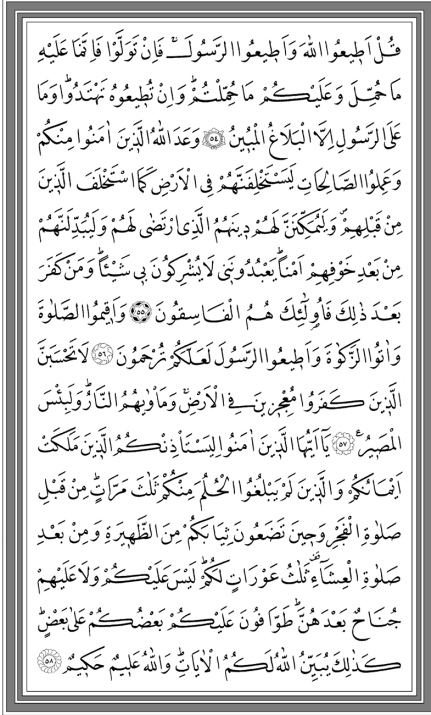 قُلْ اَطٖيعُوا اللّٰهَ وَاَطٖيعُوا الرَّسُولَۚ فَاِنْ تَوَلَّوْا فَاِنَّمَا عَلَيْهِ
مَا حُمِّلَ وَعَلَيْكُمْ مَا حُمِّلْتُمْؕ وَاِنْ تُطٖيعُوهُ تَهْتَدُواؕ وَمَا
عَلَى الرَّسُولِ اِلَّا الْبَلَاغُ الْمُبٖينُ ﴿٥٤﴾ وَعَدَ اللّٰهُ الَّذٖينَ اٰمَنُوا مِنْكُمْ
وَعَمِلُوا الصَّالِحَاتِ لَيَسْتَخْلِفَنَّهُمْ فِى الْاَرْضِ كَمَا اسْتَخْلَفَ الَّذٖينَ
مِنْ قَبْلِهِمْࣕ وَلَيُمَكِّنَنَّ لَهُمْ دٖينَهُمُ الَّذِى ارْتَضٰى لَهُمْ وَلَيُبَدِّلَنَّهُمْ
مِنْ بَعْدِ خَوْفِهِمْ اَمْنًاؕ يَعْبُدُونَنٖى لَا يُشْرِكُونَ بٖى شَيْـًٔاؕ وَمَنْ كَفَرَ
بَعْدَ ذٰلِكَ فَاُو۬لٰٓئِكَ هُمُ الْفَاسِقُونَ ﴿٥٥﴾ وَاَقٖيمُوا الصَّلٰوةَ
وَاٰتُوا الزَّكٰوةَ وَاَطٖيعُوا الرَّسُولَ لَعَلَّكُمْ تُرْحَمُونَ ﴿٥٦﴾ لَا تَحْسَبَنَّ
الَّذٖينَ كَفَرُوا مُعْجِزٖينَ فِى الْاَرْضِۚ وَمَاْوٰيهُمُ النَّارُؕ وَلَبِئْسَ
الْمَصٖيرُ ﴿٥٧﴾ يَٓا اَيُّهَا الَّذٖينَ اٰمَنُوا لِيَسْتَاْذِنْكُمُ الَّذٖينَ مَلَكَتْ
اَيْمَانُكُمْ وَالَّذٖينَ لَمْ يَبْلُغُوا الْحُلُمَ مِنْكُمْ ثَلٰثَ مَرَّاتٍؕ مِنْ قَبْلِ
صَلٰوةِ الْفَجْرِ وَحٖينَ تَضَعُونَ ثِيَابَكُمْ مِنَ الظَّهٖيرَةِ وَمِنْ بَعْدِ
صَلٰوةِ الْعِشَٓاءِࣞ ثَلٰثُ عَوْرَاتٍ لَكُمْؕ لَيْسَ عَلَيْكُمْ وَلَا عَلَيْهِمْ
جُنَاحٌ بَعْدَهُنَّؕ طَوَّافُونَ عَلَيْكُمْ بَعْضُكُمْ عَلٰى بَعْضٍؕ
كَذٰلِكَ يُبَيِّنُ اللّٰهُ لَكُمُ الْاٰيَاتِؕ وَاللّٰهُ عَلٖيمٌ حَكٖيمٌ ﴿٥٨﴾